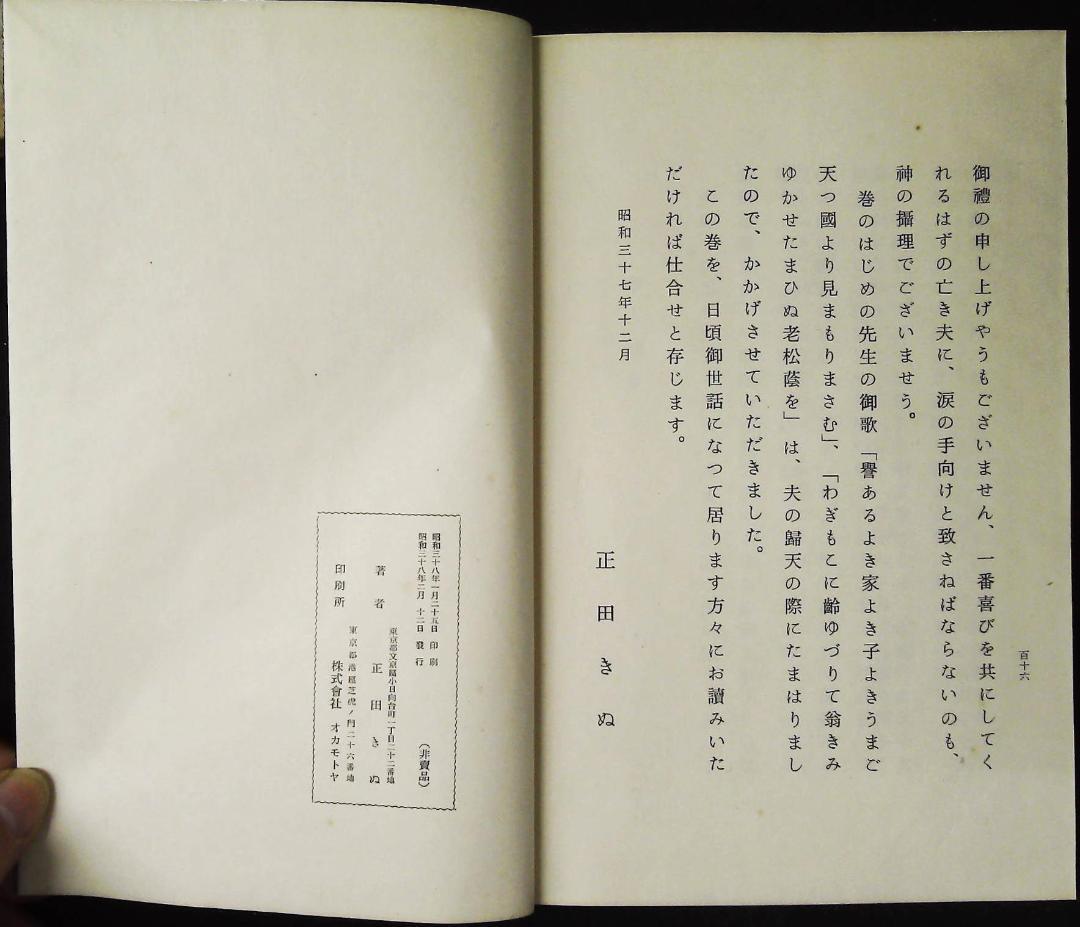 百十六
御禮の申し上げやうもございません、一番喜びを共にしてく
れるはずの亡き夫に、涙の手向けと致さねばならないのも、
神の攝理でございませう。
巻のはじめの先生の御歌「譽あるよき家よき子よきうまご
天つ國より見まもりまさむ」、「わぎもこに齢ゆづりて翁きみ
ゆかせたまひぬ老松蔭を」は、夫の歸天の際にたまはりまし
たので、かかげさせていただきました。
この巻を、日頃御世話になつて居ります方々にお讀みいた
だければ仕合せと存じます。
昭和三十七年十二月
正田きぬ
昭和三十八年一月二十五日 印刷
昭和三十八年二月 十二日 發行
(非賣品)
東京都文京區小日向台町一丁目二十二番地
著者 正田きぬ
東京都港區芝虎ノ門二十六番地
印刷所 株式會社 オカモトヤ